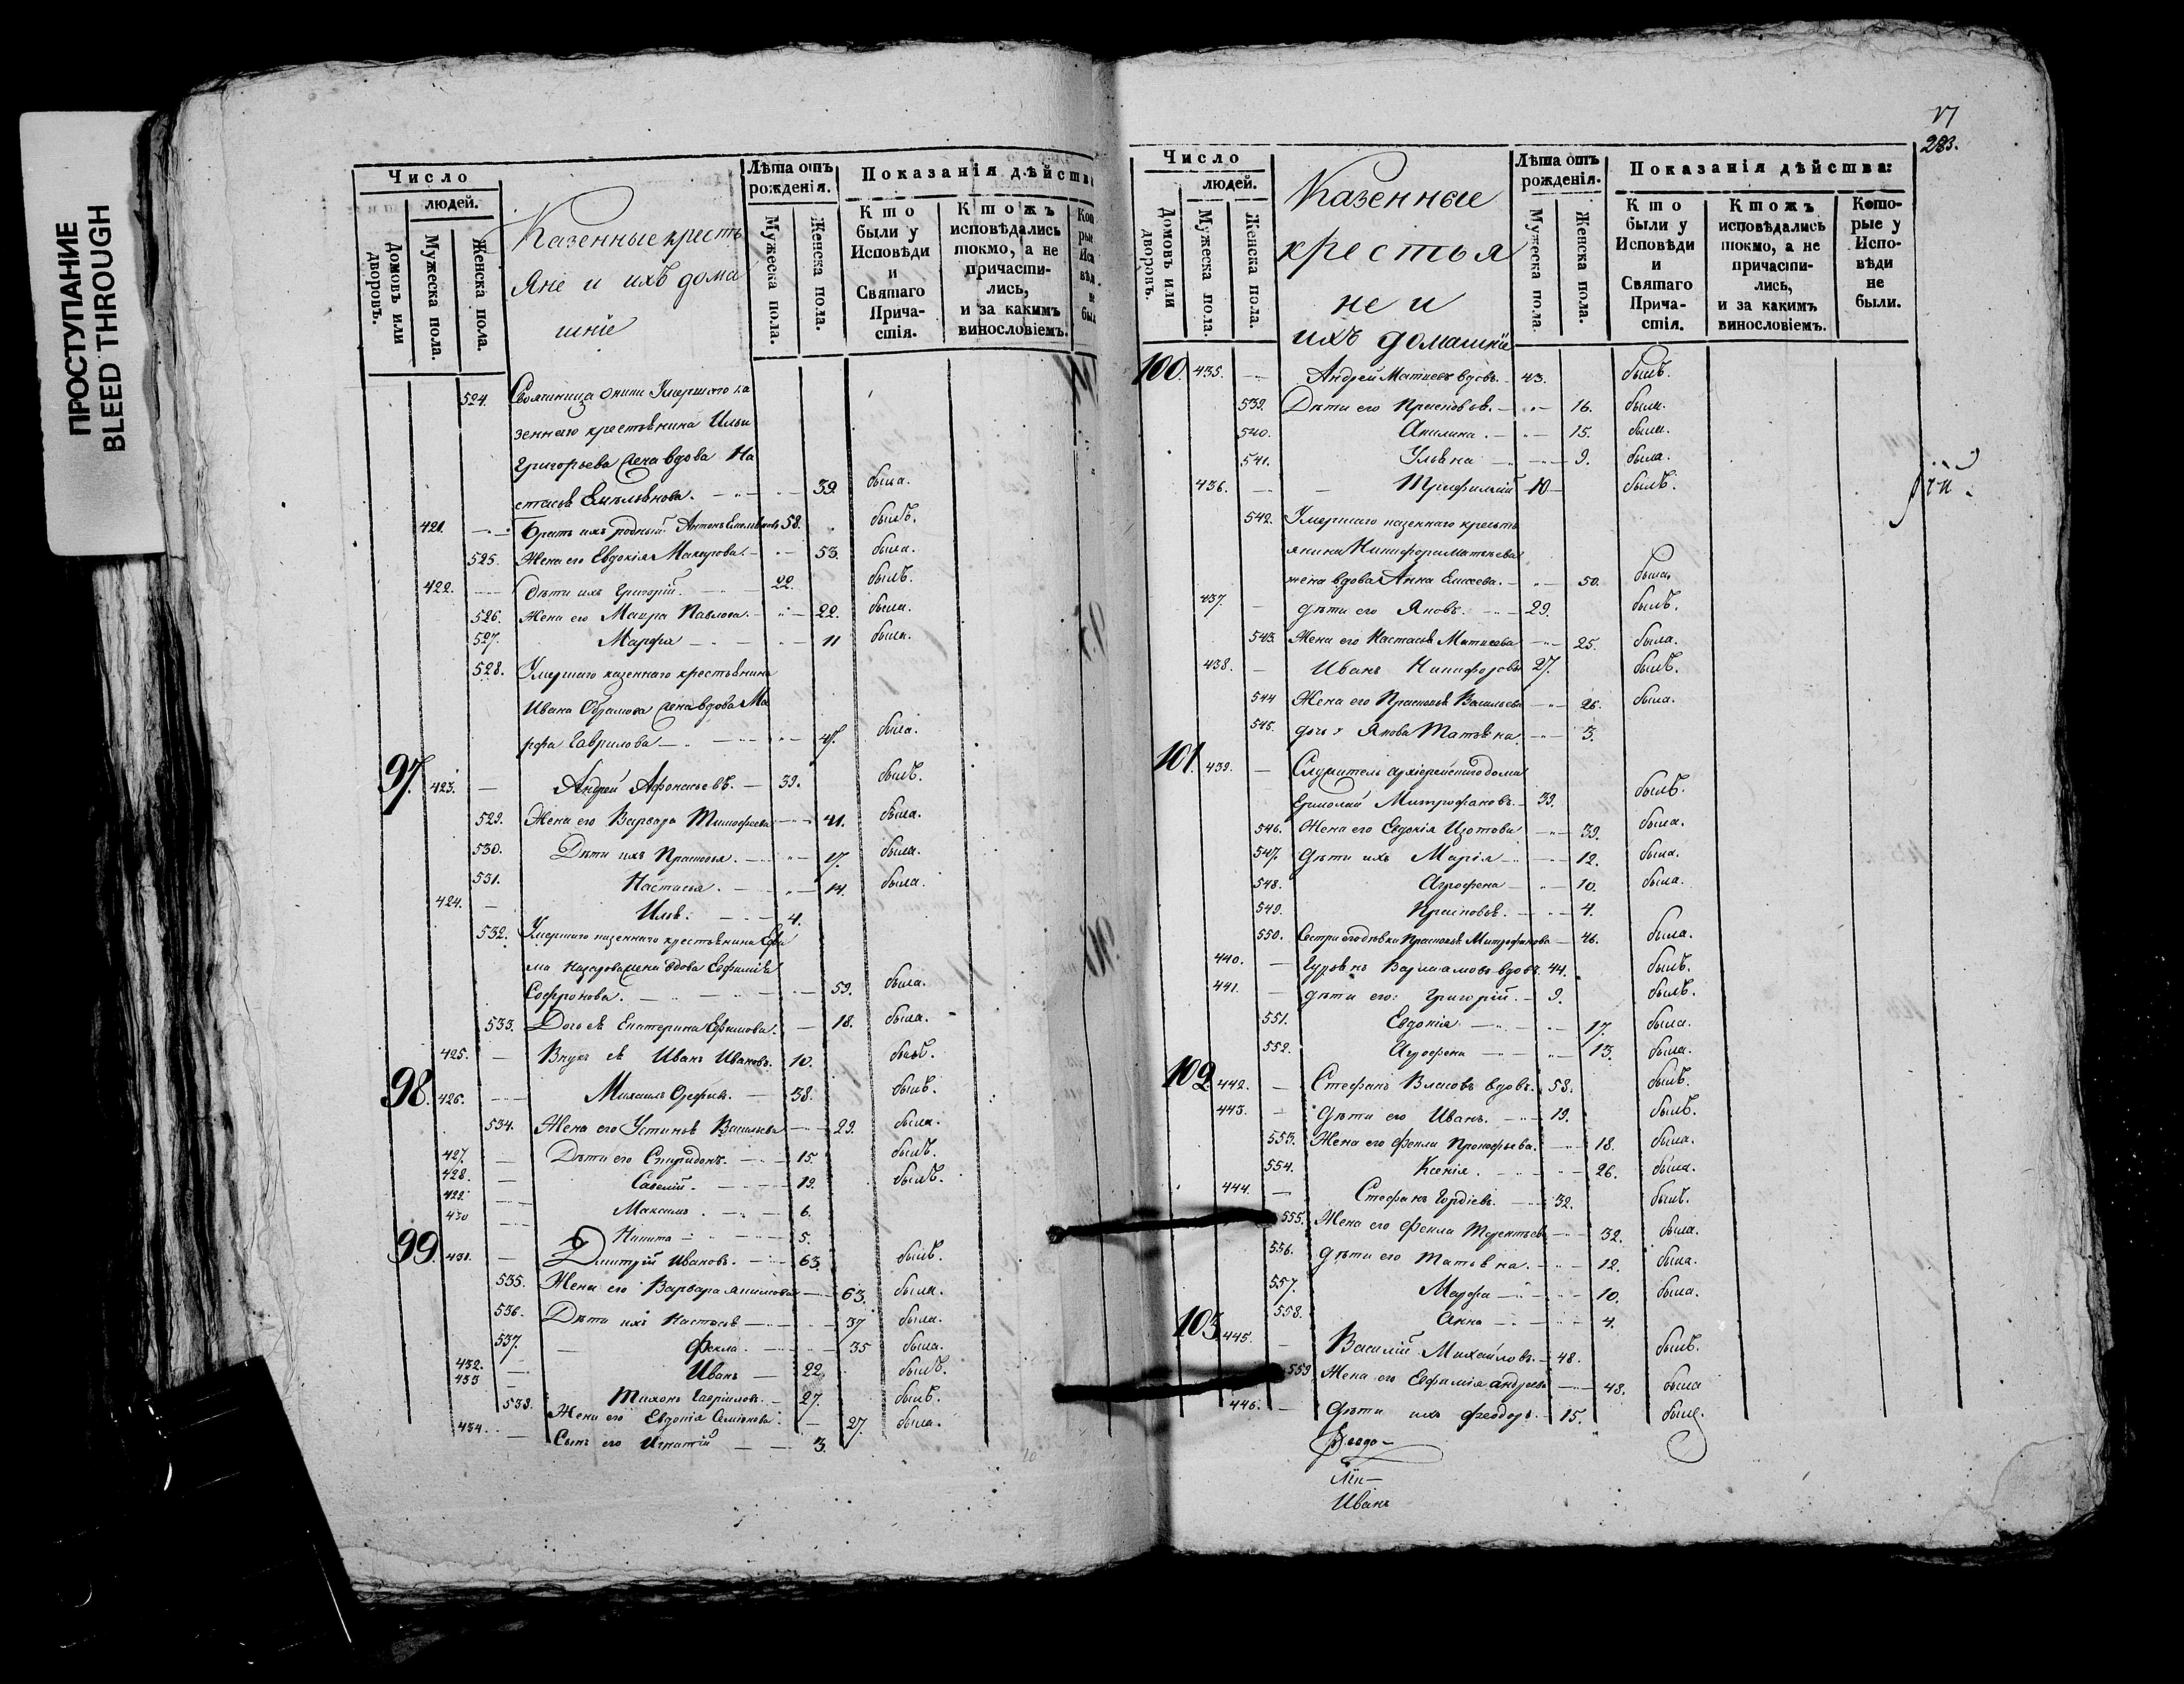 ПРОСТУПАНИЕ
BLEED THROUGH
Число
людей.
Домовъ или дворовъ.
Мужеска пола.
Женска пола.
Казенные кресть
яне и ихъ дома
шніе
Лѣта отъ рожденія.
Мужеска пола.
Женска пола.
Показанія дѣйства
Кто были у Исповѣди и Святаго Причастія.
Ктожъ исповѣдались токмо, а не причастились, и за какимъ винословіемъ.
524. Умершаго ка
зеннаго крестьянина Ильи
Григорьева жена вдова На
стасья Емельянова. 39. была.
421. Братъ ихъ родный Антонъ Емельяновъ 58. былъ.
525. Жена его Евдокія Макарова. 53. была.
422. Дѣти ихъ Григорій. 22. былъ.
526. Жена его Мавра Павлова. 22. была.
527. Марфа 11 была.
528. Умершаго казеннаго крестьянина
Ивана Абрамова жена вдова Ма
рфа Гаврилова 47. была.
97. 423. Андрей Афонасьевъ. 39. былъ.
529. Жена его Варвара Тимофеева 41. была.
530. Дѣти ихъ Прасковья. 17. была.
531. Настасья. 14. была.
424. Илья. 4.
532. Умершаго казеннаго крестьянина Ефи
ма Назарова жена вдова Евфимія
Софронова. 59. была.
533. Дочь ея Екатерина Ефимова. 18. была.
425. Внукъ ея Иванъ Ивановъ. 10. былъ.
98. 426. Михаилъ 38. былъ.
534. Жена его Устинья Васильева 29. была.
427. Дѣти его Спиридонъ. 15. былъ.
428. Савелій. 12. былъ.
429. Максимъ. 6.
430 Никита 5.
99. 431. Дмитрій Ивановъ. 63. былъ.
535. Жена его Варвара Якимова 63. была.
536. Дѣти ихъ Настасья 37 была.
537. Фекла. 35 была.
432. Иванъ 22 былъ.
433 Тихонъ Гавриловъ. 27. былъ.
538. Жена его Евдокія 27. была.
434. Сынъ его Игнатій 3.
17
283.
Число
людей.
Домовъ или дворовъ.
Мужеска пола.
Женска пола.
Казенные
крестья
не и
ихъ домашніе
Лѣта отъ рожденія.
Мужеска пола.
Женска пола.
Показанія дѣйства:
Кто были у Исповѣди и Святаго Причастія.
Ктожъ исповѣдались токмо, а не причастились, и за какимъ винословіемъ.
Которые у Исповѣди не были.
100. 435. Андрей Матвеевъ вдовъ. 43. былъ.
539. Дѣти его Прасковья. 16. была.
540. Акилина. 15. была.
541. Ульяна 9. была.
436. Трифиллий 10 былъ.
542. Умершаго казеннаго кресть
янина Никифора Матвеева
жена вдова Анна Елисеева. 50. была.
437. дѣти его Яковъ. 29. былъ.
543. Жена его Настасья Матвеева 25. была.
438. Иванъ Никифоровъ 27. былъ.
544 Жена его Прасковья Васильева 26. была.
545. дочь Якова Татьяна 3.
101. 439. Служитель архіерейскаго дома
Ермолай Митрофановъ. 39. былъ.
546. Жена его Евдокія Изотова 39. была.
547. дѣти ихъ Марія 12. была.
548. Агрофена 10. была.
549. Прасковья. 4.
550. Сестра его дѣвка Прасковья Митрофанова 46. была.
440. Гурьянъ Варламовъ вдовъ. 44. былъ.
441. дѣти его: Григорій. 9. былъ.
551. Евдокія 17. была.
552. Агрофена 13. была.
102. 442. Стефанъ Власовъ вдовъ. 58. былъ.
443. Дѣти его Иванъ. 19. былъ.
553. Жена его Фекла Прокофьева. 18. была.
554. Ксенія. 26. была.
444. Стефанъ Гордіевъ. 32. былъ.
555. Жена его Фекла Терентьева 32. была.
556. дѣти его Татьяна. 12. была.
557. Марфа 10. была.
558. Анна 4.
103. 445. Василій Михайловъ. 48. былъ.
559 Жена его Евфимія Андреева 48. была
446. Дѣти ихъ Феодоръ. 15. былъ.
Иванъ